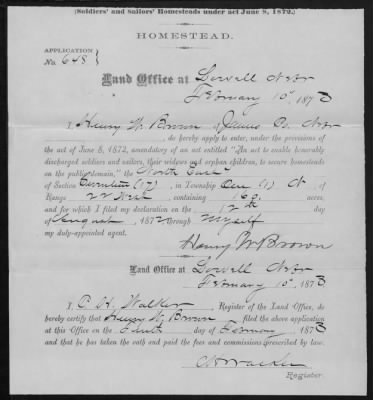 (Soldiers' and Sailors' Homesteads under act June 8, 1872.)
HOMESTEAD.
APPLICATION
No. 648
Land Office at Lowell Nebr
February 10th, 1873
I, Henry W. Brown of Co. Nebr
, do hereby apply to enter, under the provisions
of the act of June 8, 1872, amendatory of an act entitled "An act to enable honorably
discharged soldiers and sailors, their widows and orphan children, to secure homesteads
on the public domain," the North East ¼
of Section Seventeen (17), in Township Ten (10) N of
Range 22 West, containing 160 acres,
and for which I filed my declaration on the 12th day
of August, 1872 through Myself
my duly-appointed agent.
Henry W Brown
Land Office at Lowell Nebr
February 10th, 1873
I, C. A. Walker, Register of the Land Office, do
hereby certify that Henry W. Brown filed the above application
at this Office on the Tenth day of February, 1873
and that he has taken the oath and paid the fees and commissions prescribed by law.
C A Walker
Register.